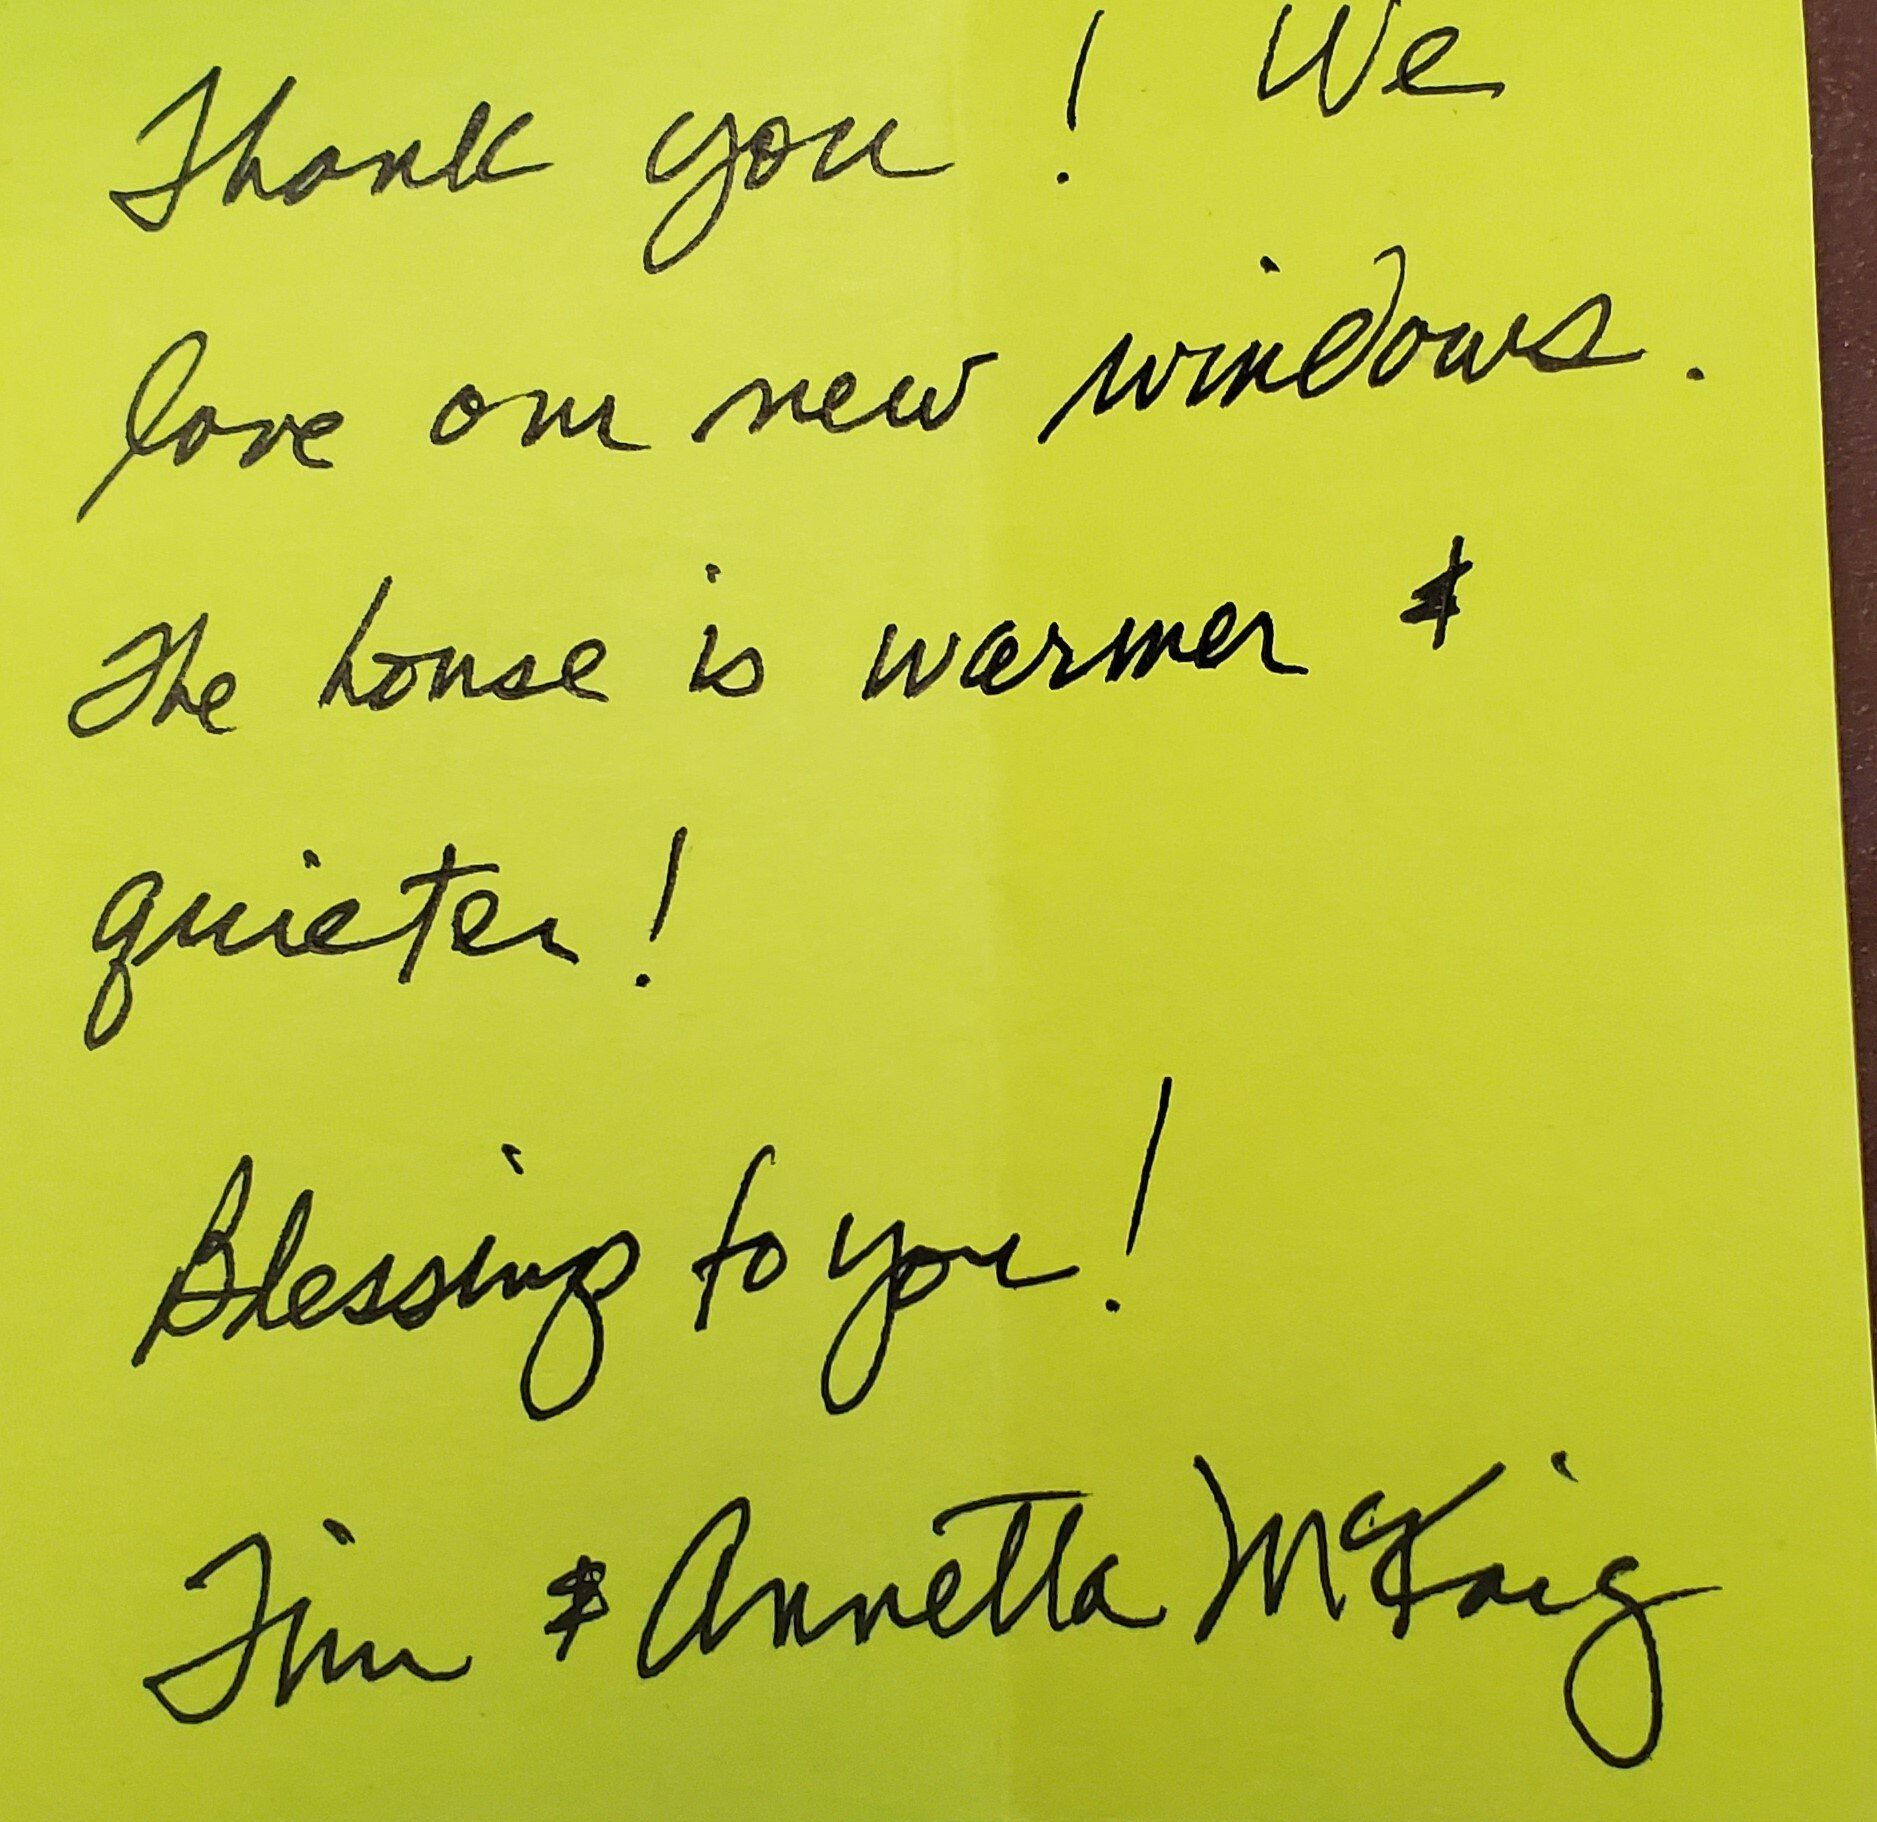 Thank you! We
love our new windows.
The house is warmer &
quieter!
Blessing to you!
Tim & Annetta McKaig